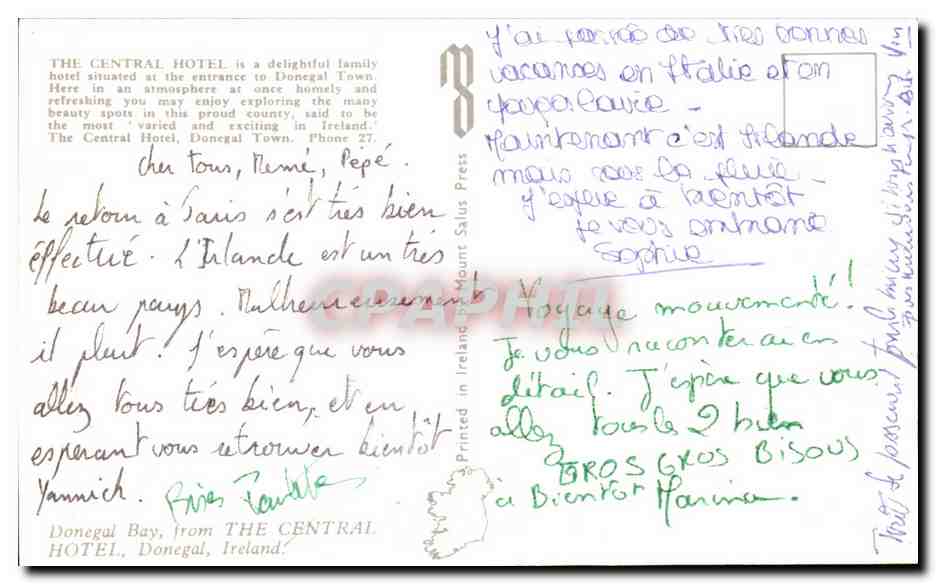 THE CENTRAL HOTEL is a delightful family
hotel situated at the entrance to Donegal Town.
Here in an atmosphere at once homely and
refreshing you may enjoy exploring the many
beauty spots in this proud county, said to be
the most 'varied and exciting in Ireland.'
The Central Hotel, Donegal Town. Phone 27.
Cher tous, Memé, Pépé.
Le retour à Paris s'est très bien
éffectué. L'Irlande est un très
beau pays. Malheureusement
il pleut. J'espère que vous
allez tous très bien, et en
esperant vous retrouver bientôt
Yannick.
Bises
Donegal Bay, from THE CENTRAL
HOTEL, Donegal, Ireland.
Printed in Ireland by Mount Salus Press
J'ai passé de très bonnes
vacances en Italie et en
Yougoslavie -
Maintenant c'est Irlande
mais sous la pluie -
J'espère à bientôt
je vous embrasse
Sophie
Voyage mouvementé!
Je vous raconterai en
détail. J'espère que vous
allez tous les 2 bien
GROS GROS BISOUS
à Bientôt Marina.
CPAPHIL